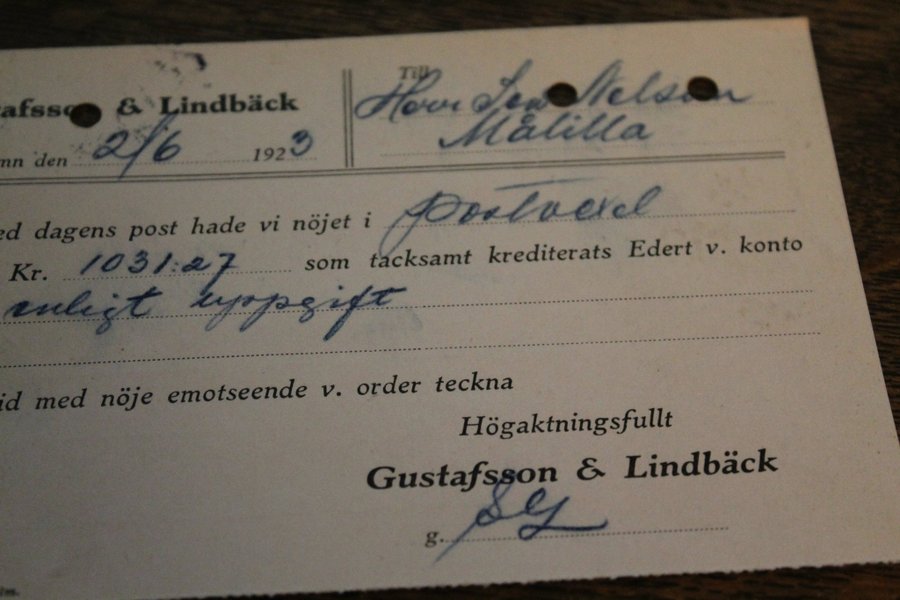 afsson & Lindbäck
mn den 2/6 1923
Till
Herr Nelson
Målilla
ed dagens post hade vi nöjet i postvexel
Kr. 1031:27 som tacksamt krediterats Edert v. konto
enligt uppgift
id med nöje emotseende v. order teckna
Högaktningsfullt
Gustafsson & Lindbäck
g. SG